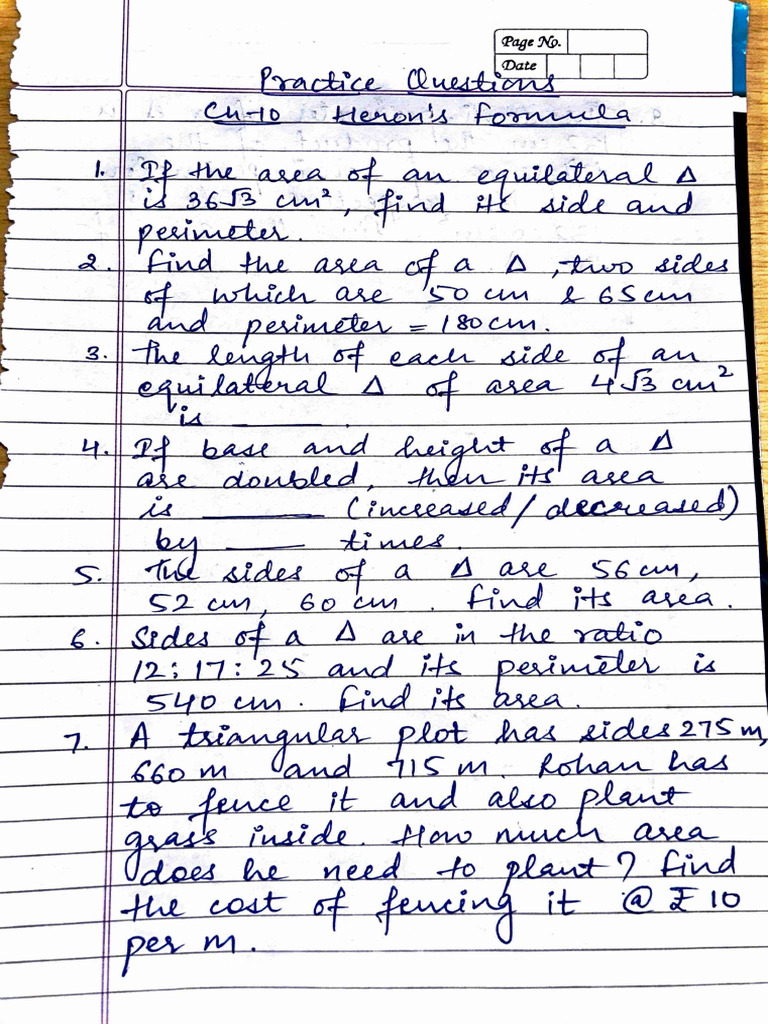 Page No.
Date
Practice Questions
Ch-10 Heron's Formula
1. If the area of an equilateral Δ
is 36√3 cm², find its side and
perimeter.
2. Find the area of a Δ, two sides
of which are 50 cm & 65 cm
and perimeter = 180 cm.
3. The length of each side of an
equilateral Δ of area 4√3 cm²
is ______.
4. If base and height of a Δ
are doubled, then its area
is ______ (increased/decreased)
by ____ times.
5. The sides of a Δ are 56 cm,
52 cm, 60 cm. Find its area.
6. Sides of a Δ are in the ratio
12:17:25 and its perimeter is
540 cm. Find its area.
7. A triangular plot has sides 275 m,
660 m and 715 m. Rohan has
to fence it and also plant
grass inside. How much area
does he need to plant? Find
the cost of fencing it @ ₹ 10
per m.